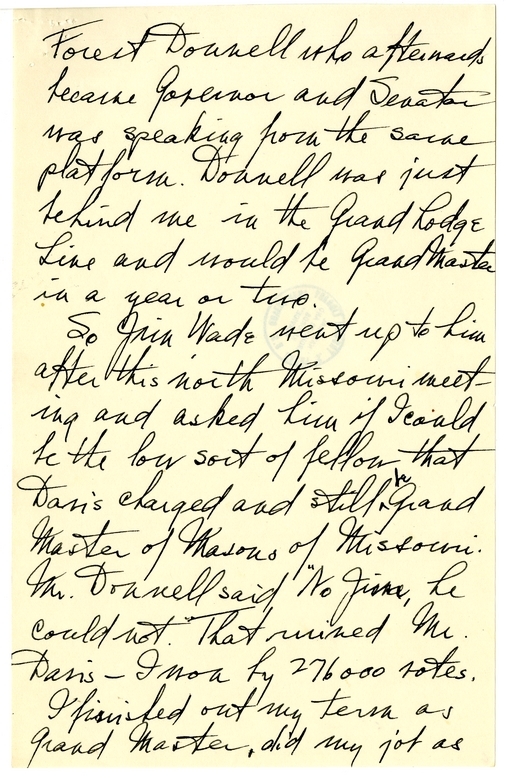 Forest Donnell who afterwards
became Governor and Senator
was speaking from the same
platform. Donnell was just
behind me in the Grand Lodge
Line and would be Grand Master
in a year or two.
So Jim Wade went up to him
after this north Missouri meet-
ing and asked him if I could
be the low sort of fellow that
be
Davis charged and still Grand
Master of Masons of Missouri.
Mr. Donnell said "No Jim, he
could not." That ruined Mr.
Davis – I won by 276000 votes.
I finished out my term as
Grand Master, did my job as